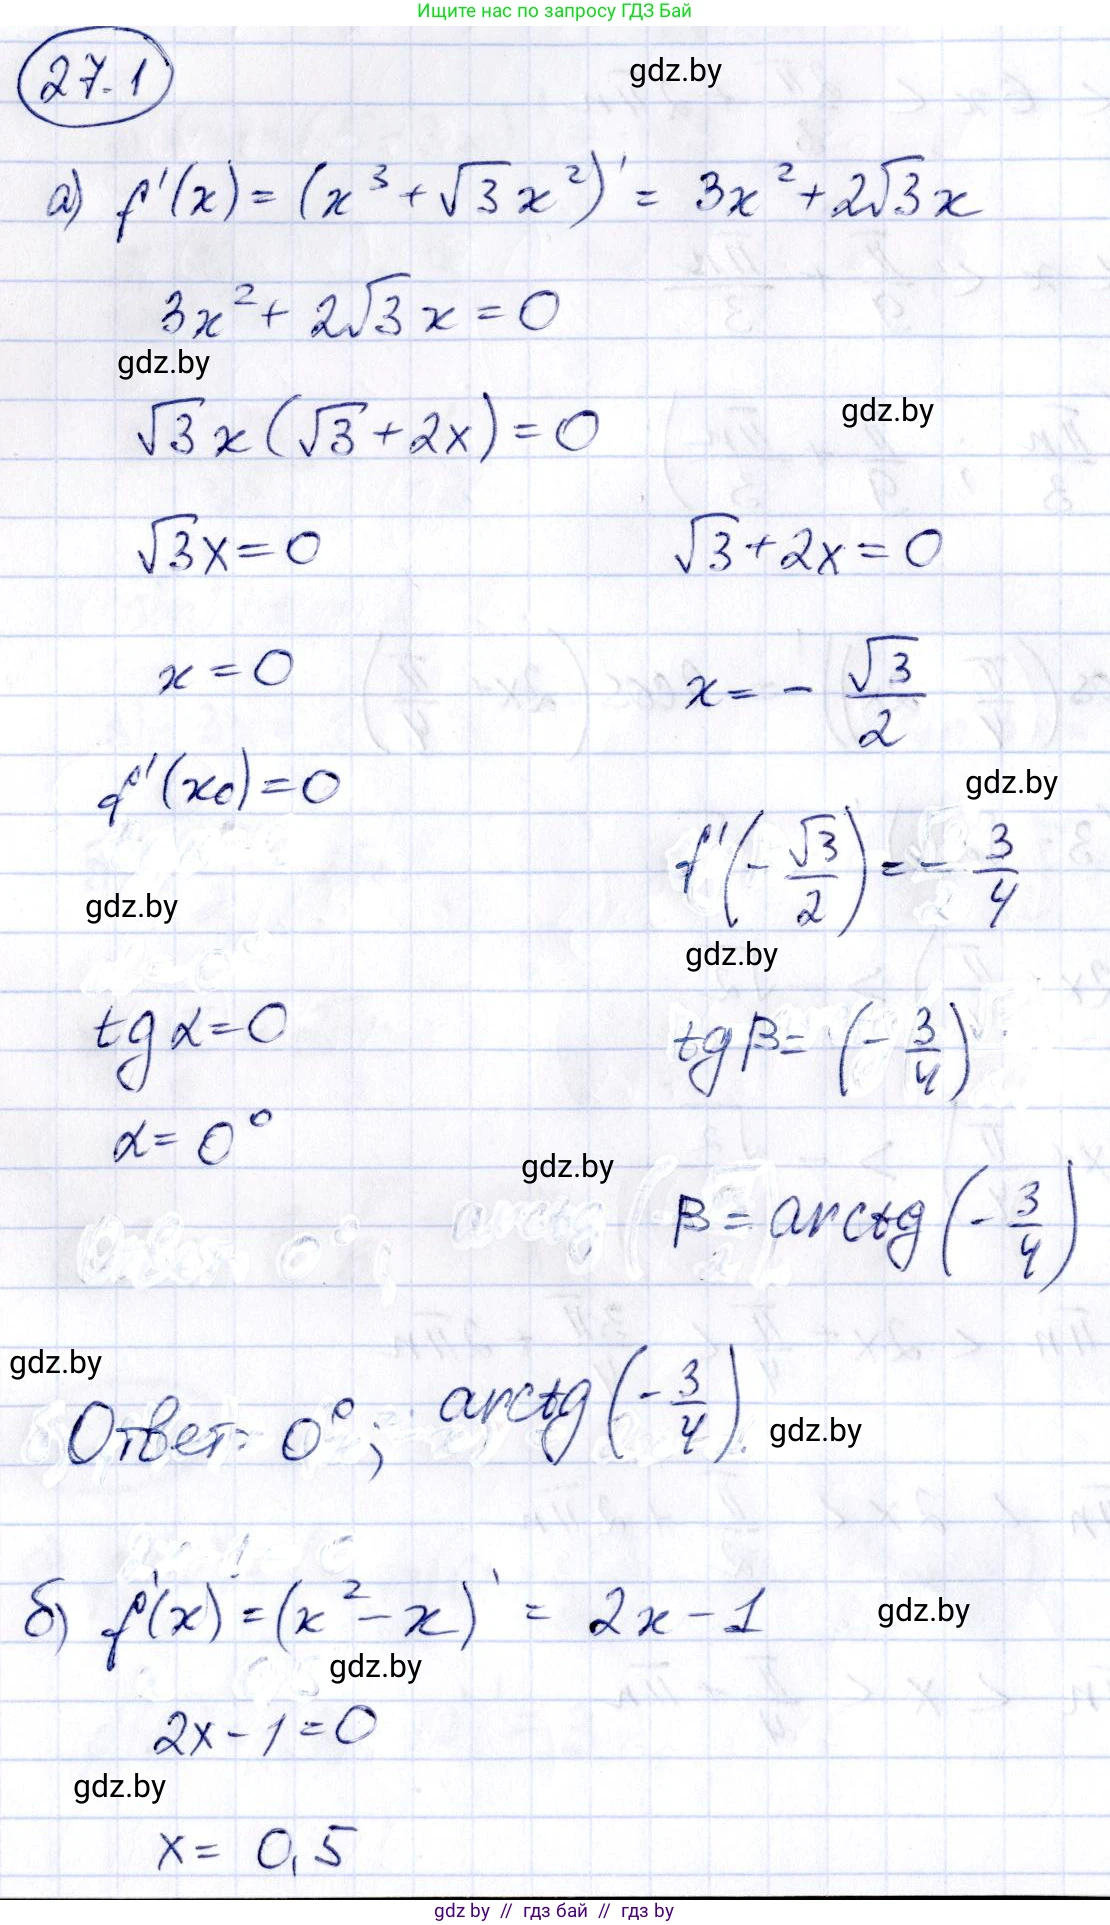 Ищите нас по запросу ГДЗ Бай
27.1
gdz.by
а) f'(x) = (x³ + √3x²)' = 3x² + 2√3x
3x² + 2√3x = 0
gdz.by
gdz.by
√3x(√3 + 2x) = 0
√3x = 0 √3 + 2x = 0
x = 0 x = - √3/2
gdz.by
f'(x₀) = 0
f'(-√3/2) = - 3/4
gdz.by
gdz.by
tg α = 0 tg β = (-3/4)
α = 0°
gdz.by
β = arctg(-3/4)
gdz.by
Ответ: 0°; arctg(-3/4).
gdz.by
б) f'(x) = (x² - x)' = 2x - 1
gdz.by
gdz.by
2x - 1 = 0
gdz.by
x = 0,5
gdz.by // гдз бай // гдз by